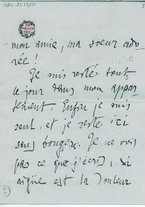 mon amie, ma soeur ado
rée !
Je suis resté tout
le jour dans mon appar
tement. Enfin je suis
seul, et je reste ici
sans bouger. Je ne vois
pas ce que j'écris, si
aigüe est la douleur